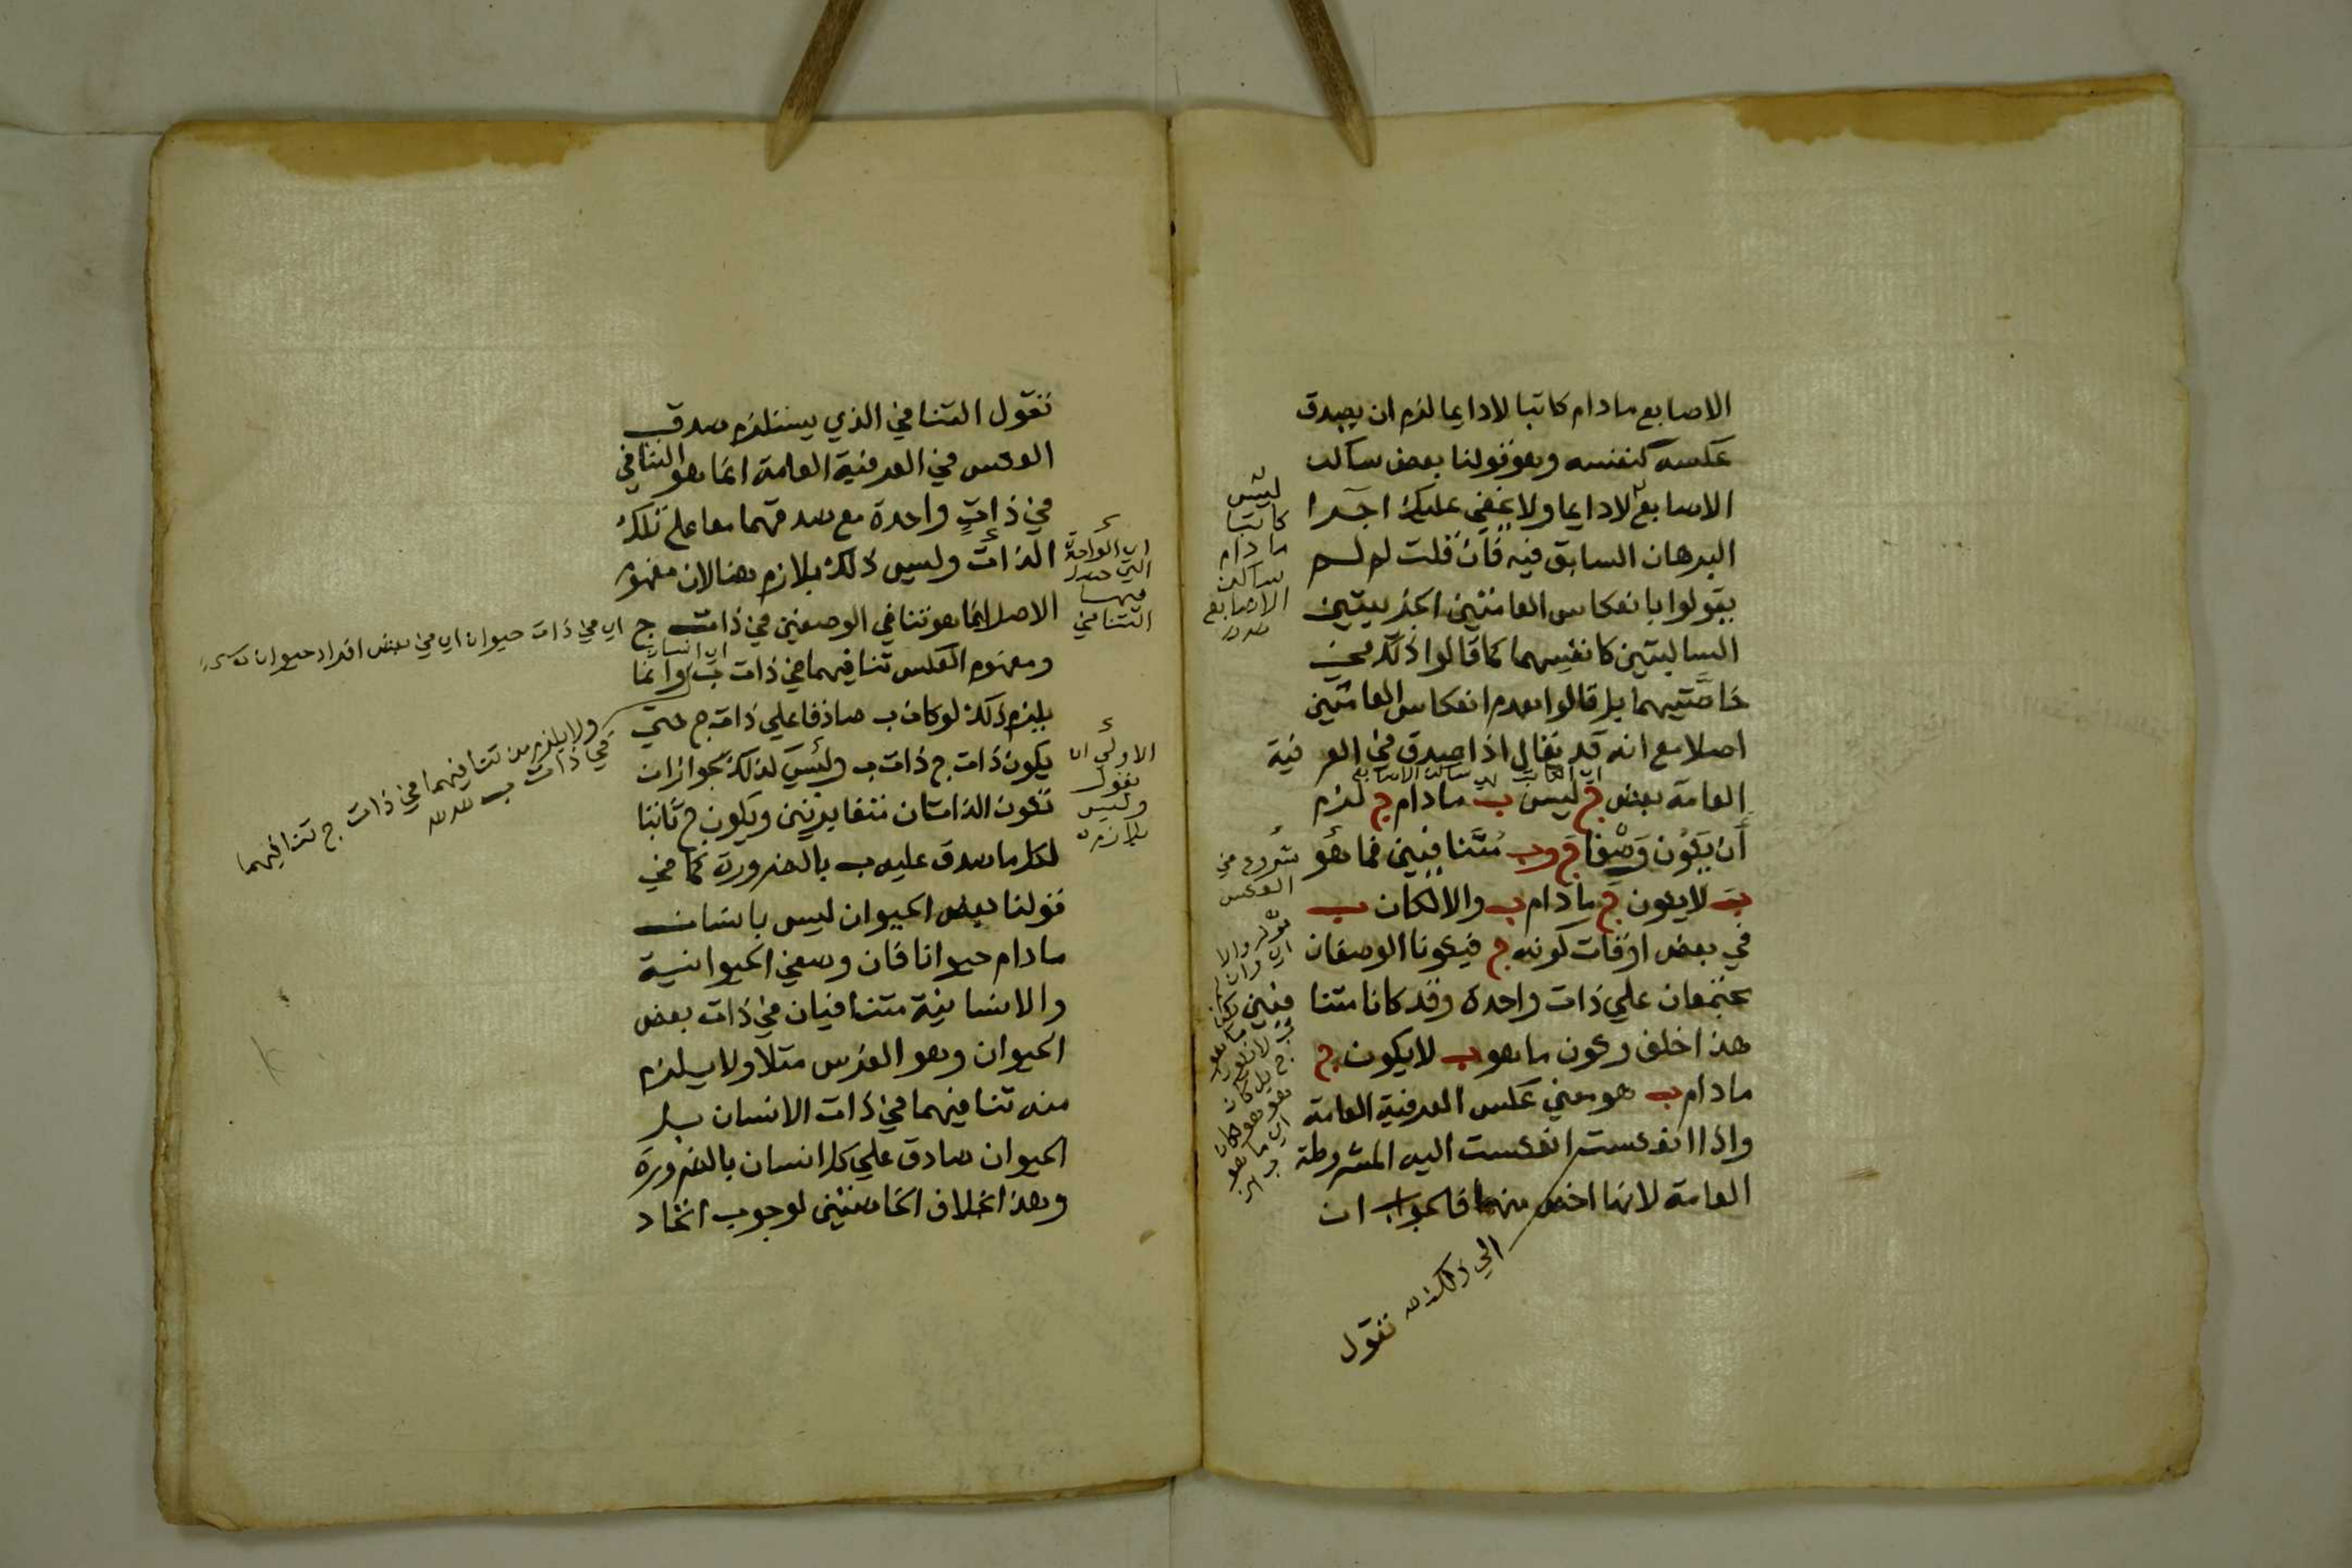 الاصابع مادام كاتبا لادايما لزم ان يصدق
عكسه كنفسه وهو قولنا بعض ساكن
الاصابع لادايما ولا يخفي عليك اجرا
البرهان السابق فيه فان قلت لم لم
يقولوا بانعكاس العامتين الجزييتين
السالبتين كانفسهما كما قالوا ذلك في
خاصتيهما بل قالوا بعدم انعكاس العامتين
اصلا مع انه قد يقال اذا صدق في العرفية
العامة بعض ج ليس ب مادام ج لزم
أن يكون وصفا ج وب متنافيين فما هو
ب لا يكون ج مادام ب والا لكان ب
في بعض اوقات كونه ج فيكونا الوصفان
يجتمعان علي ذات واحدة وقد كانا متنا فيين
هذا خلف وكون ما هو ب لا يكون ج
مادام ب هو معني عكس العرفية العامة
واذا انعكست انعكست اليه المشروطة
العامة لانها اخص منها فالجواب ان
نقول
ليس
كاتبا
مادام
ساكن
الاصابع
شروع في
العكس
الي ذلك
نقول التنافي الذي يستلزم صدق
العكس في العرفية العامة انما هو التنافي
في ذات واحدة مع صدقهما معا علي تلك
الذات وليس ذلك بلازم هنا لان مفهوم
الاصل انما هو تنافي الوصفين في ذات ج
ومفهوم العكس تنافيهما في ذات ب وانما
يلزم ذلك لو كان ب صادقا علي ذات ج حتي
يكون ذات ج ذات ب وليس كذلك لجواز ان
تكون الذاتان متغايرتين ويكون ج ثابتا
لكل ما صدق عليه ب بالضرورة كما في
قولنا بعض الحيوان ليس بانسان
مادام حيوانا فان وصفي الحيوانية
والانسانية متنافيان في ذات بعض
الحيوان وهو الفرس مثلا ولا يلزم
منه تنافيهما في ذات الانسان بل
الحيوان صادق علي كل انسان بالضرورة
وهذا خلاف الخاصتين لوجوب اتحاد
اي الواحدة
التي حصل
فيها
التنافي
الاولي ان
يقول
وليس
بلازم
اي في ذات حيوان اي في بعض افراد حيوان
اي انسان
ولا يلزم من تنافيهما في ذات ج تنافيهما
في ذات ب